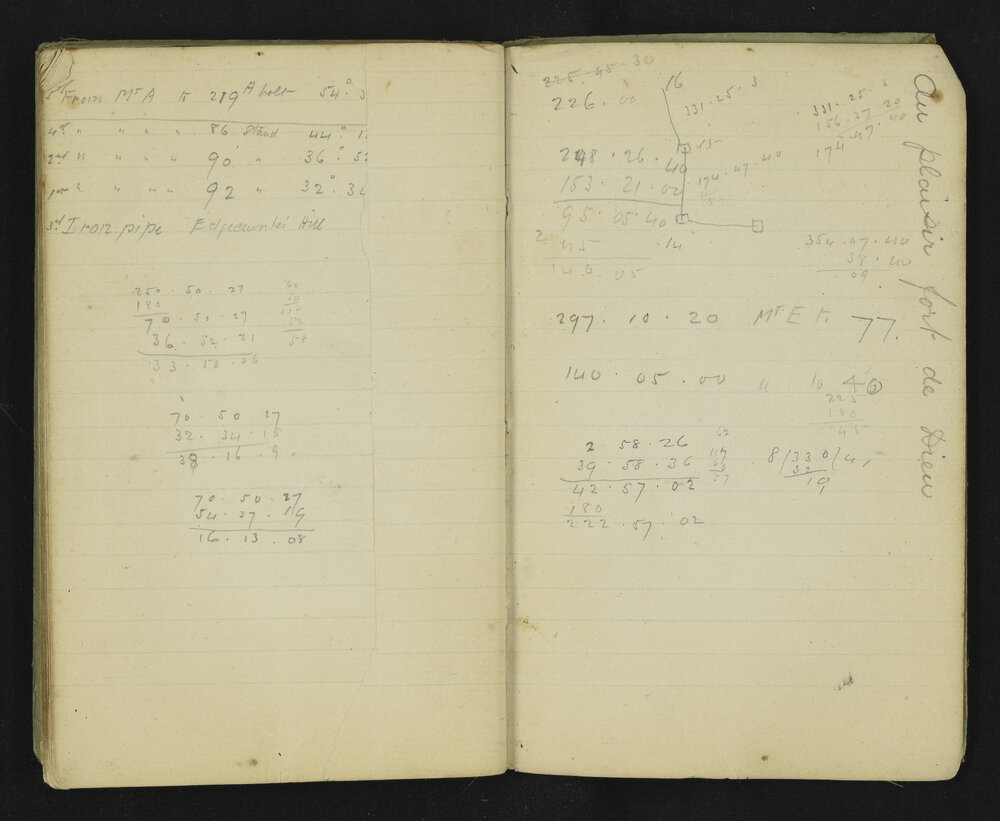 5th From Mr A to 289 A bolt 54° 3
4th " " " " 86 Stand 44° 1
2nd " " " " 90 " 36° 52
" " " " 92 " 32° 34
3rd Iron pipe Edgecumbe's Hill
250 . 50 . 27
180
70 . 50 . 27
36 . 52 . 21
33 . 58 . 06
60
50
110
52
58
70 . 50 . 27
32 . 34 . 18
38 . 16 . 9
70 . 50 . 27
54 . 37 . 19
16 . 13 . 08
225 . 45 . 30
226 . 00
248 . 26 . 40
153 . 21 . 00
95 . 05 . 40
2 45
140 . 05
16
331 . 25 . 3
15
174 . 47 . 40
14
331 . 25 . 3
156 . 37 . 20
174 . 47 . 40
354 . 47 . 40
38 . 00
. 09
297 . 10 . 20 Mr E to 77.
140 . 05 . 00 " to 40
225
180
45
2 . 58 . 26
39 . 58 . 36
42 . 57 . 02
180
222 . 57 . 02
62
57
8/330/4
32
19
Au plaisir fort de Dieu